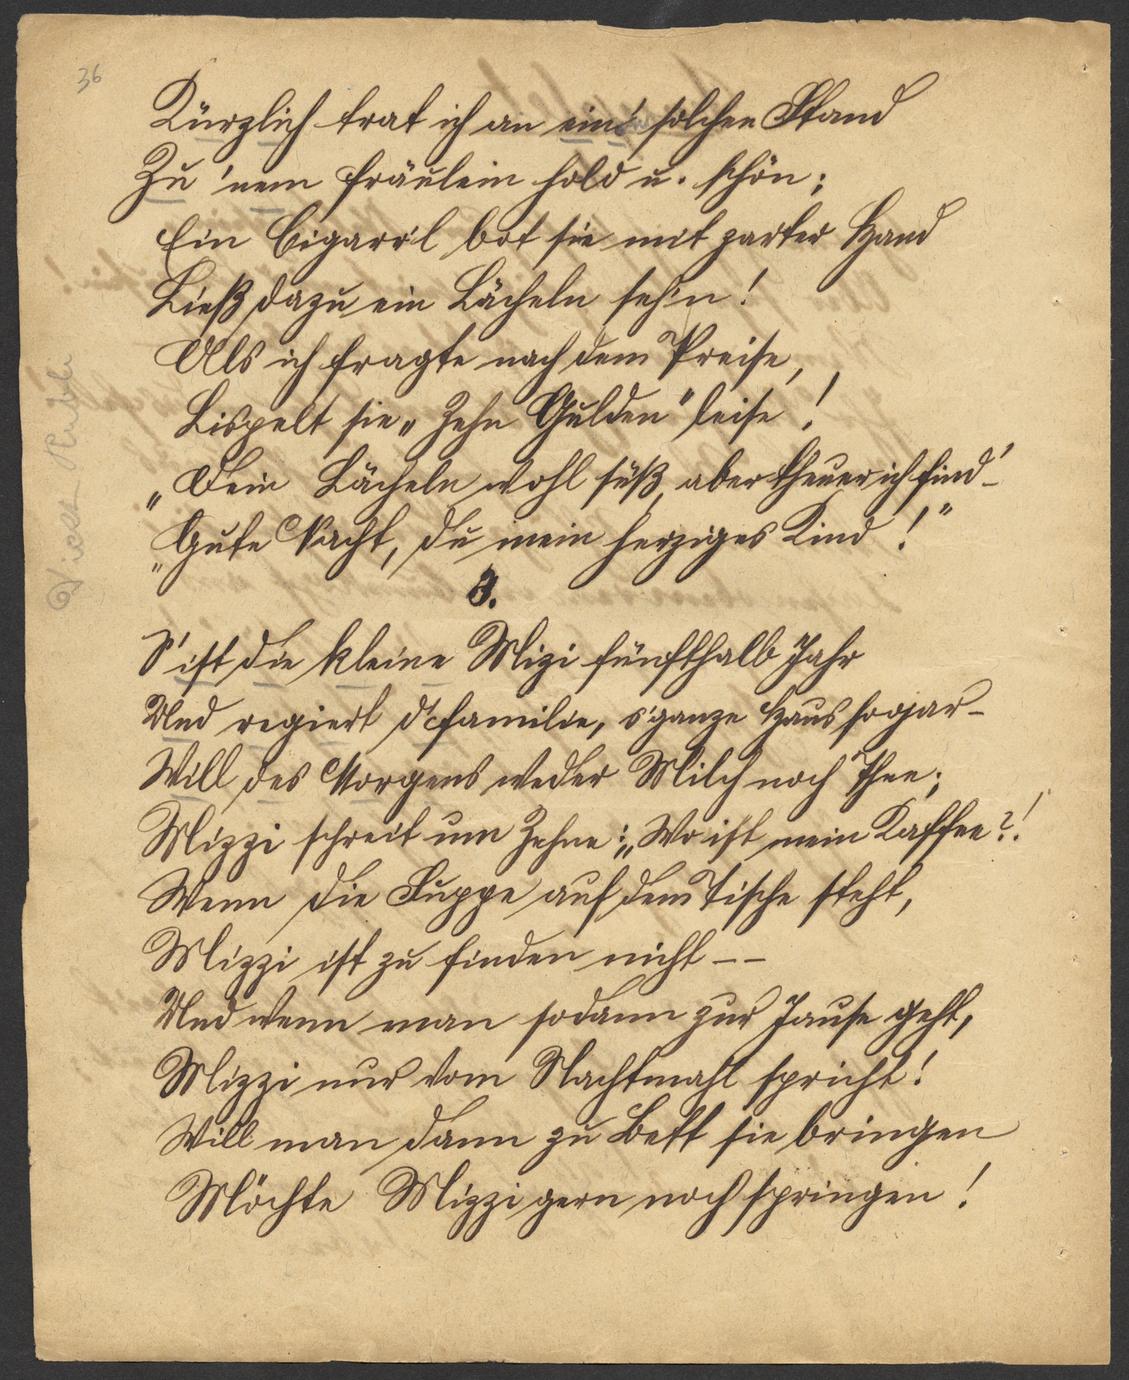 36
Kürzlich trat ich an ein' solchen Stand
Zu 'nem Fräulein hold u. schön;
Ein Cigarr'l bot sie mit zarter Hand
Ließ dazu ein Lächeln seh'n!
Als ich fragte nach dem Preise,
Lispelt sie „Zehn Gulden" leise!
„Dein Lächeln wohl süß, aber theuer ich find'-
„Gute Nacht, du mein herziges Kind!"
3.
S' ist die kleine Mizi fünfthalb Jahr
Und regiert d' Familie, s' ganze Haus sogar-
Will des Morgens weder Milch noch Thee;
Mizzi schreit um Zehne: „Wo ist mein Kaffee?!
Wenn die Suppe auf dem Tische steht,
Mizzi ist zu finden nicht--
Und wenn man sodann zur Jause geht,
Mizzi nur vom Nachtmahl spricht!
Will man dann zu Bett sie bringen
Möchte Mizzi gern noch springen!